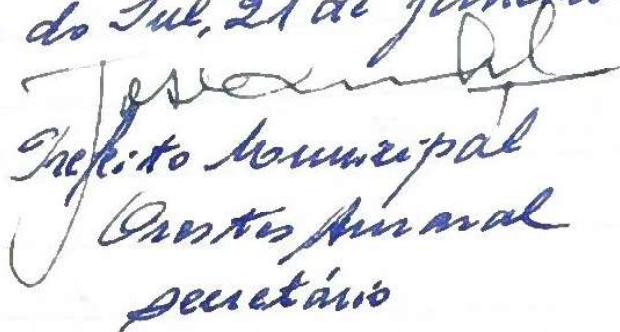 do Sul, 21 de janeiro
Prefeito Municipal
Orestes Amaral
secretário